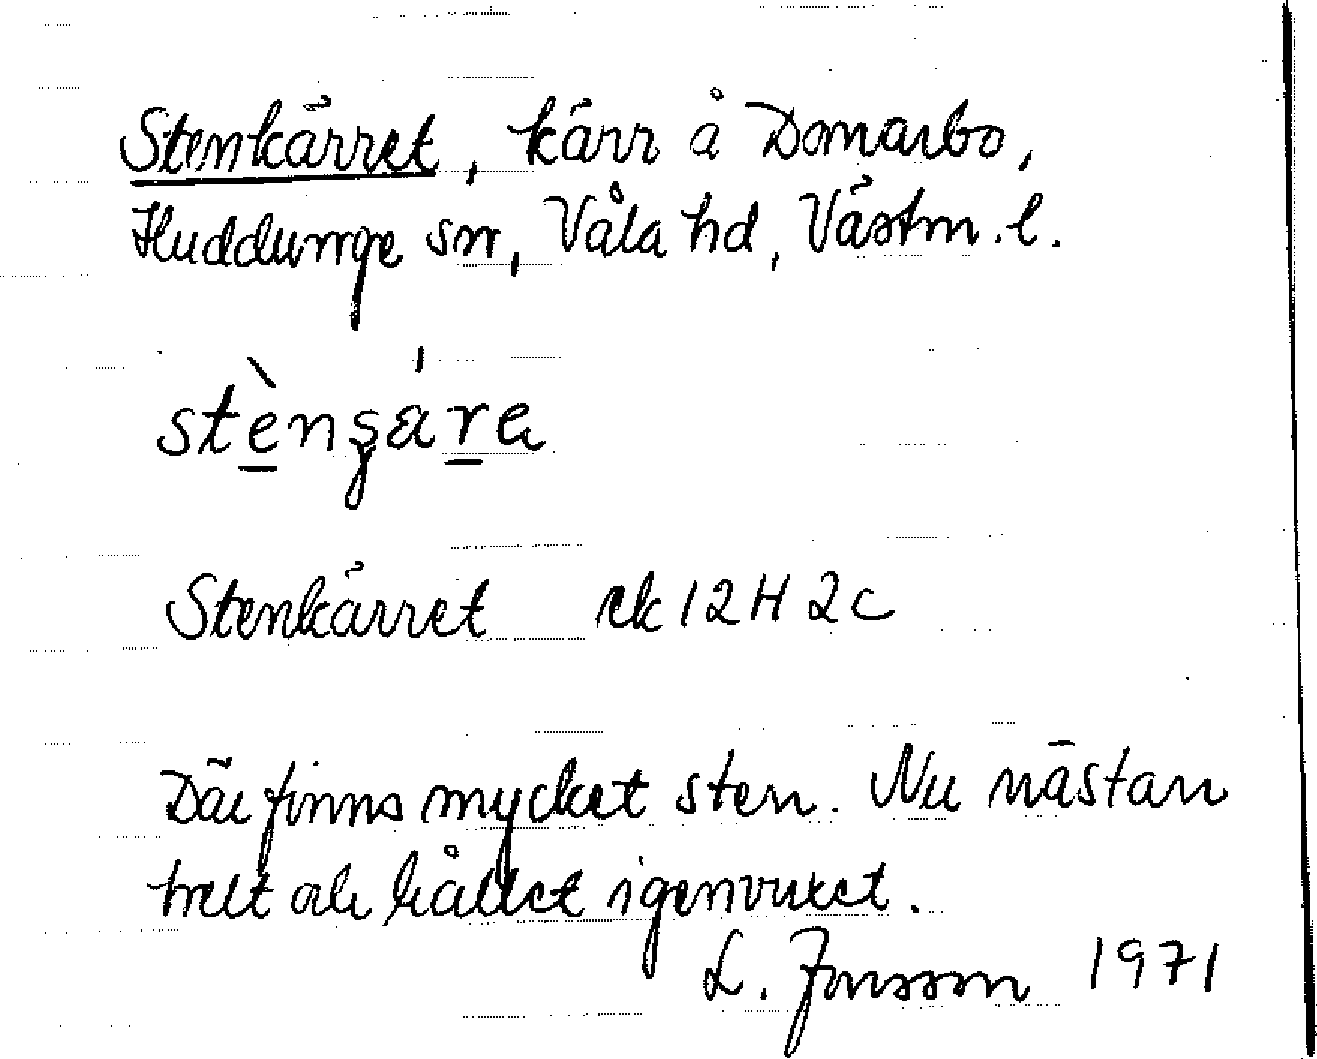 Stenkärret, kärr å Domarbo,
Huddunge sn, Våla hd, Västm. l.
stèngára
Stenkärret ek 12 H 2 c
Där finns mycket sten. Nu nästan
helt och hållet igenvuxet.
L. Jonsson 1971